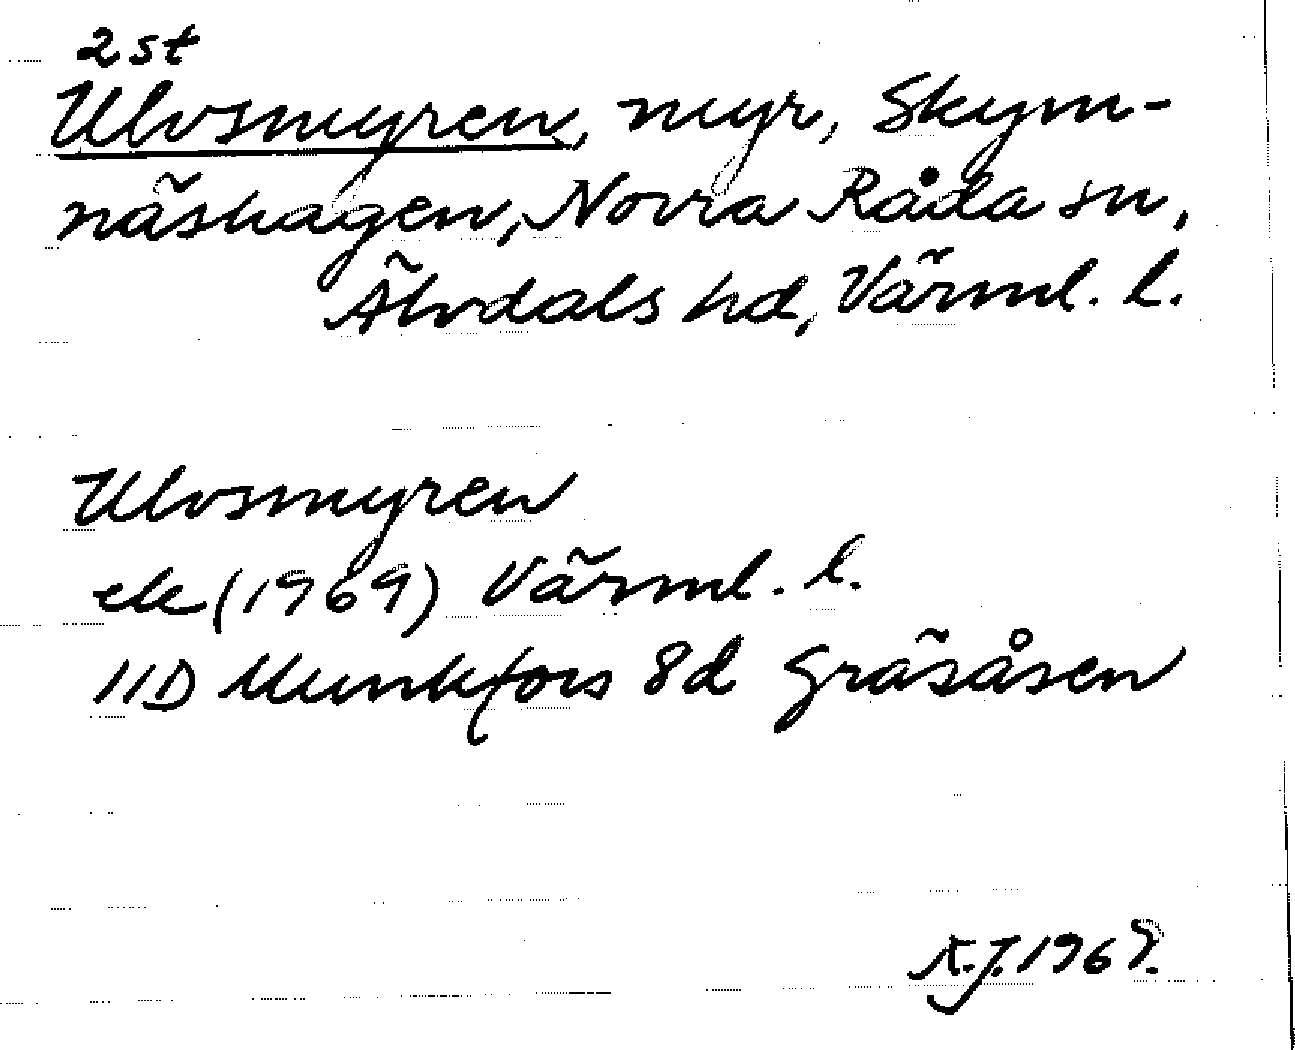 2 st
Ulvsmyren, myr, Skym-
näshagen, Norra Råda sn,
Älvdals hd, Värml. l.
Ulvsmyren
ek (1969) Värml. l.
11D Munkfors 8d Gräsåsen
K.J. 1969.